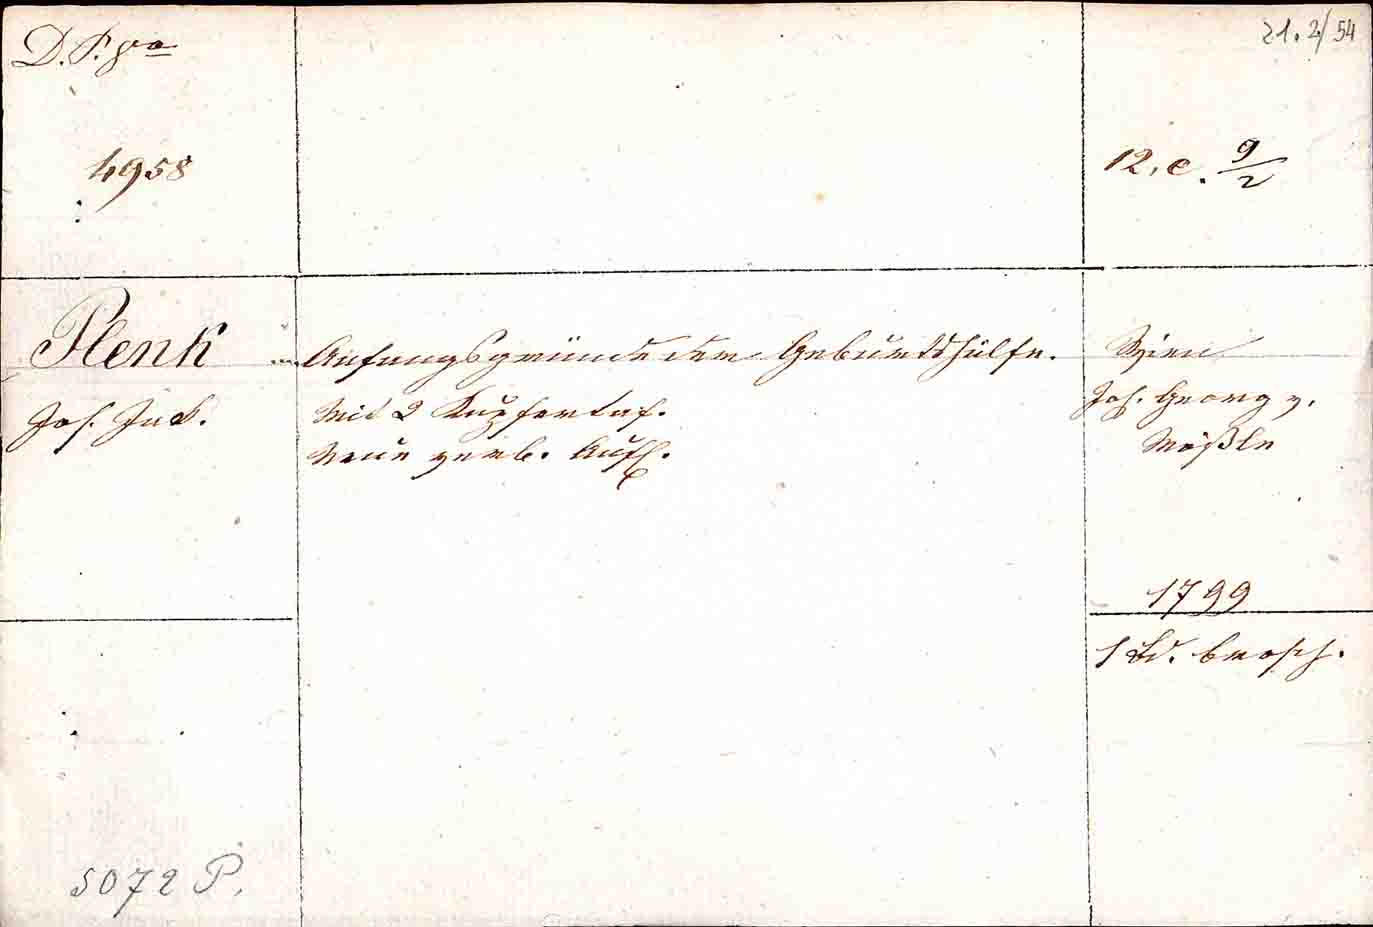 D. P. 8vo
4958
12. c. 9/2
21. 2/54
Plenk
Jos. Jac.
Anfangsgründe der Geburtshülfe.
Mit 2 Kupfertaf.
Neue verb. Aufl.
Wien
Joh. Georg v.
Mößle
1799
1 Bd. brosch.
5072 P.